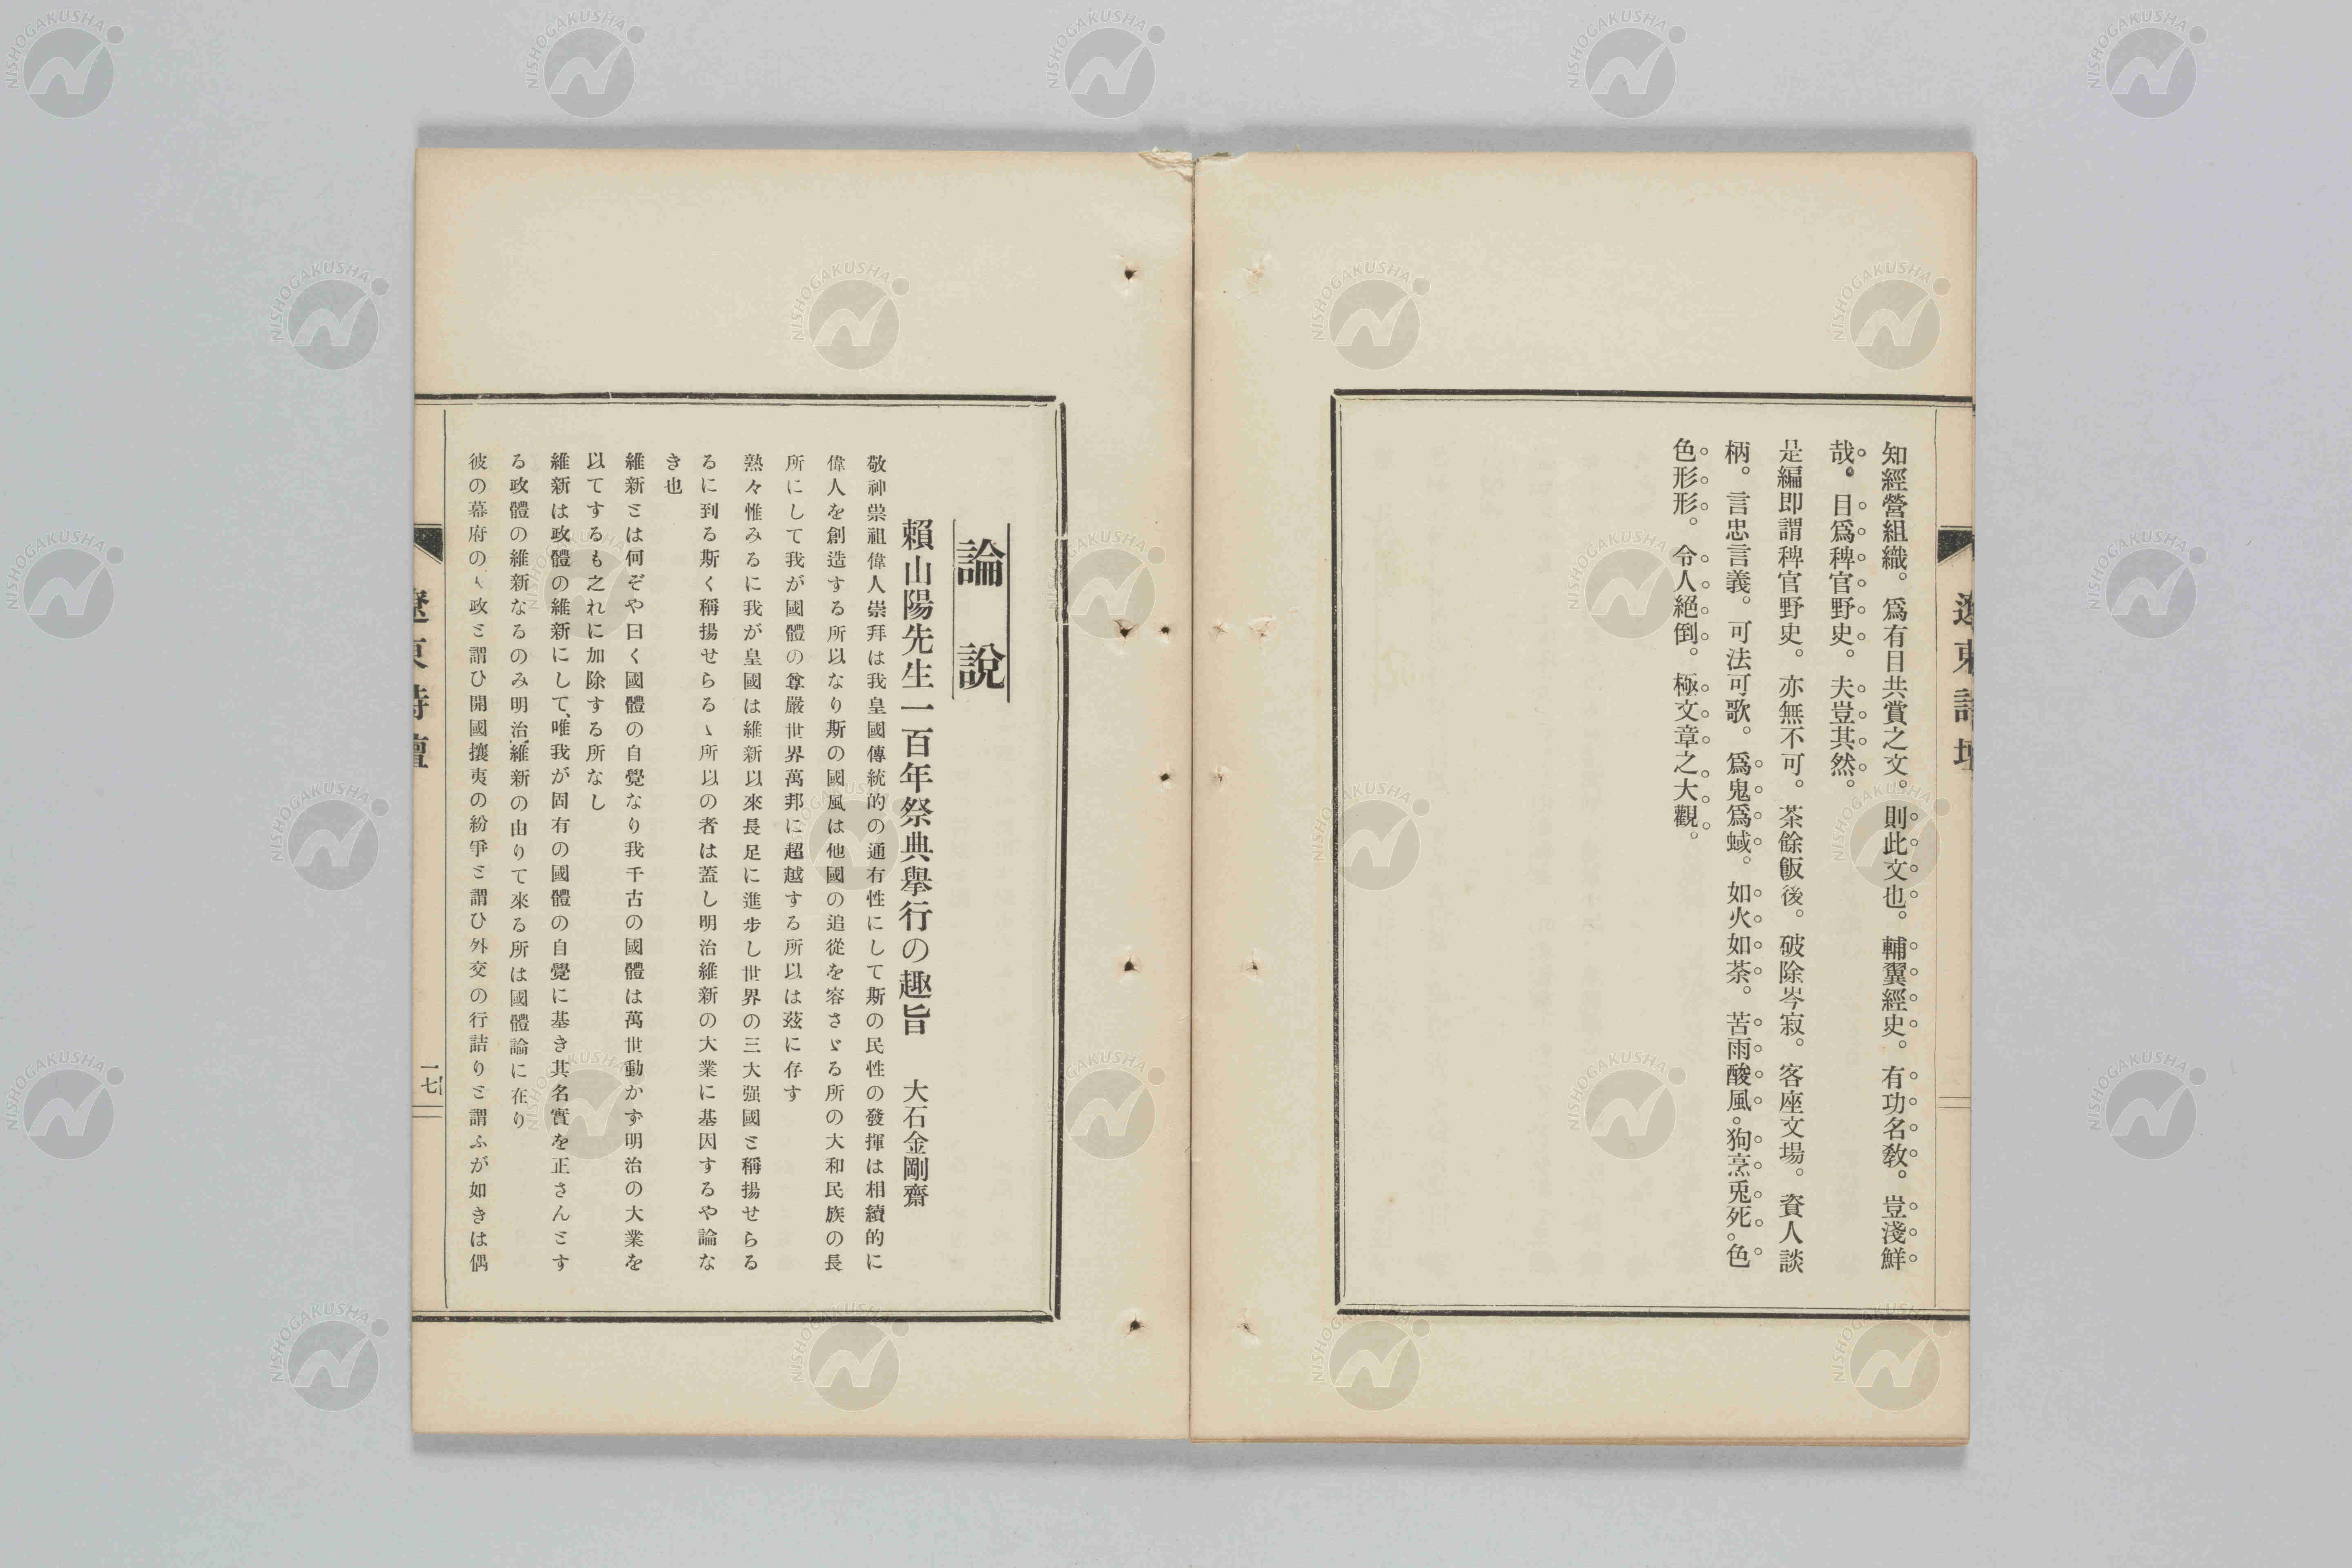 知經營組織。爲有目共賞之文。則此文也。輔翼經史。有功名敎。豈淺鮮
哉。目爲稗官野史。夫豈其然。
是編即謂稗官野史。亦無不可。茶餘飯後。破除岑寂。客座文場。資人談
柄。言忠言義。可法可歌。爲鬼爲蜮。如火如荼。苦雨酸風。狗烹兎死。色
色形形。令人絕倒。極文章之大觀。
論說
賴山陽先生一百年祭典擧行の趣旨　大石金剛齋
敬神祟祖偉人崇拜は我皇國傳統的の通有性にして斯の民性の發揮は相續的に
偉人を創造する所以なり斯の國風は他國の追從を容さゞる所の大和民族の長
所にして我が國體の尊嚴世界萬邦に超越する所以は玆に存す
熟々惟みるに我が皇國は維新以來長足に進步し世界の三大强國と稱揚せらる
るに到る斯く稱揚せらるゝ所以の者は蓋し明治維新の大業に基因するや論な
き也
維新とは何ぞや曰く國體の自覺なり我千古の國體は萬世動かず明治の大業を
以てするも之れに加除する所なし
維新は政體の維新にして、唯我が固有の國體の自覺に基き其名實を正さんとす
る政體の維新なるのみ明治維新の由りて來る所は國體論に在り
彼の幕府の政と謂ひ開國攘夷の紛爭と謂ひ外交の行詰りと謂ふが如きは偶
遼東詩壇
一七
NISHOGAKUSHA